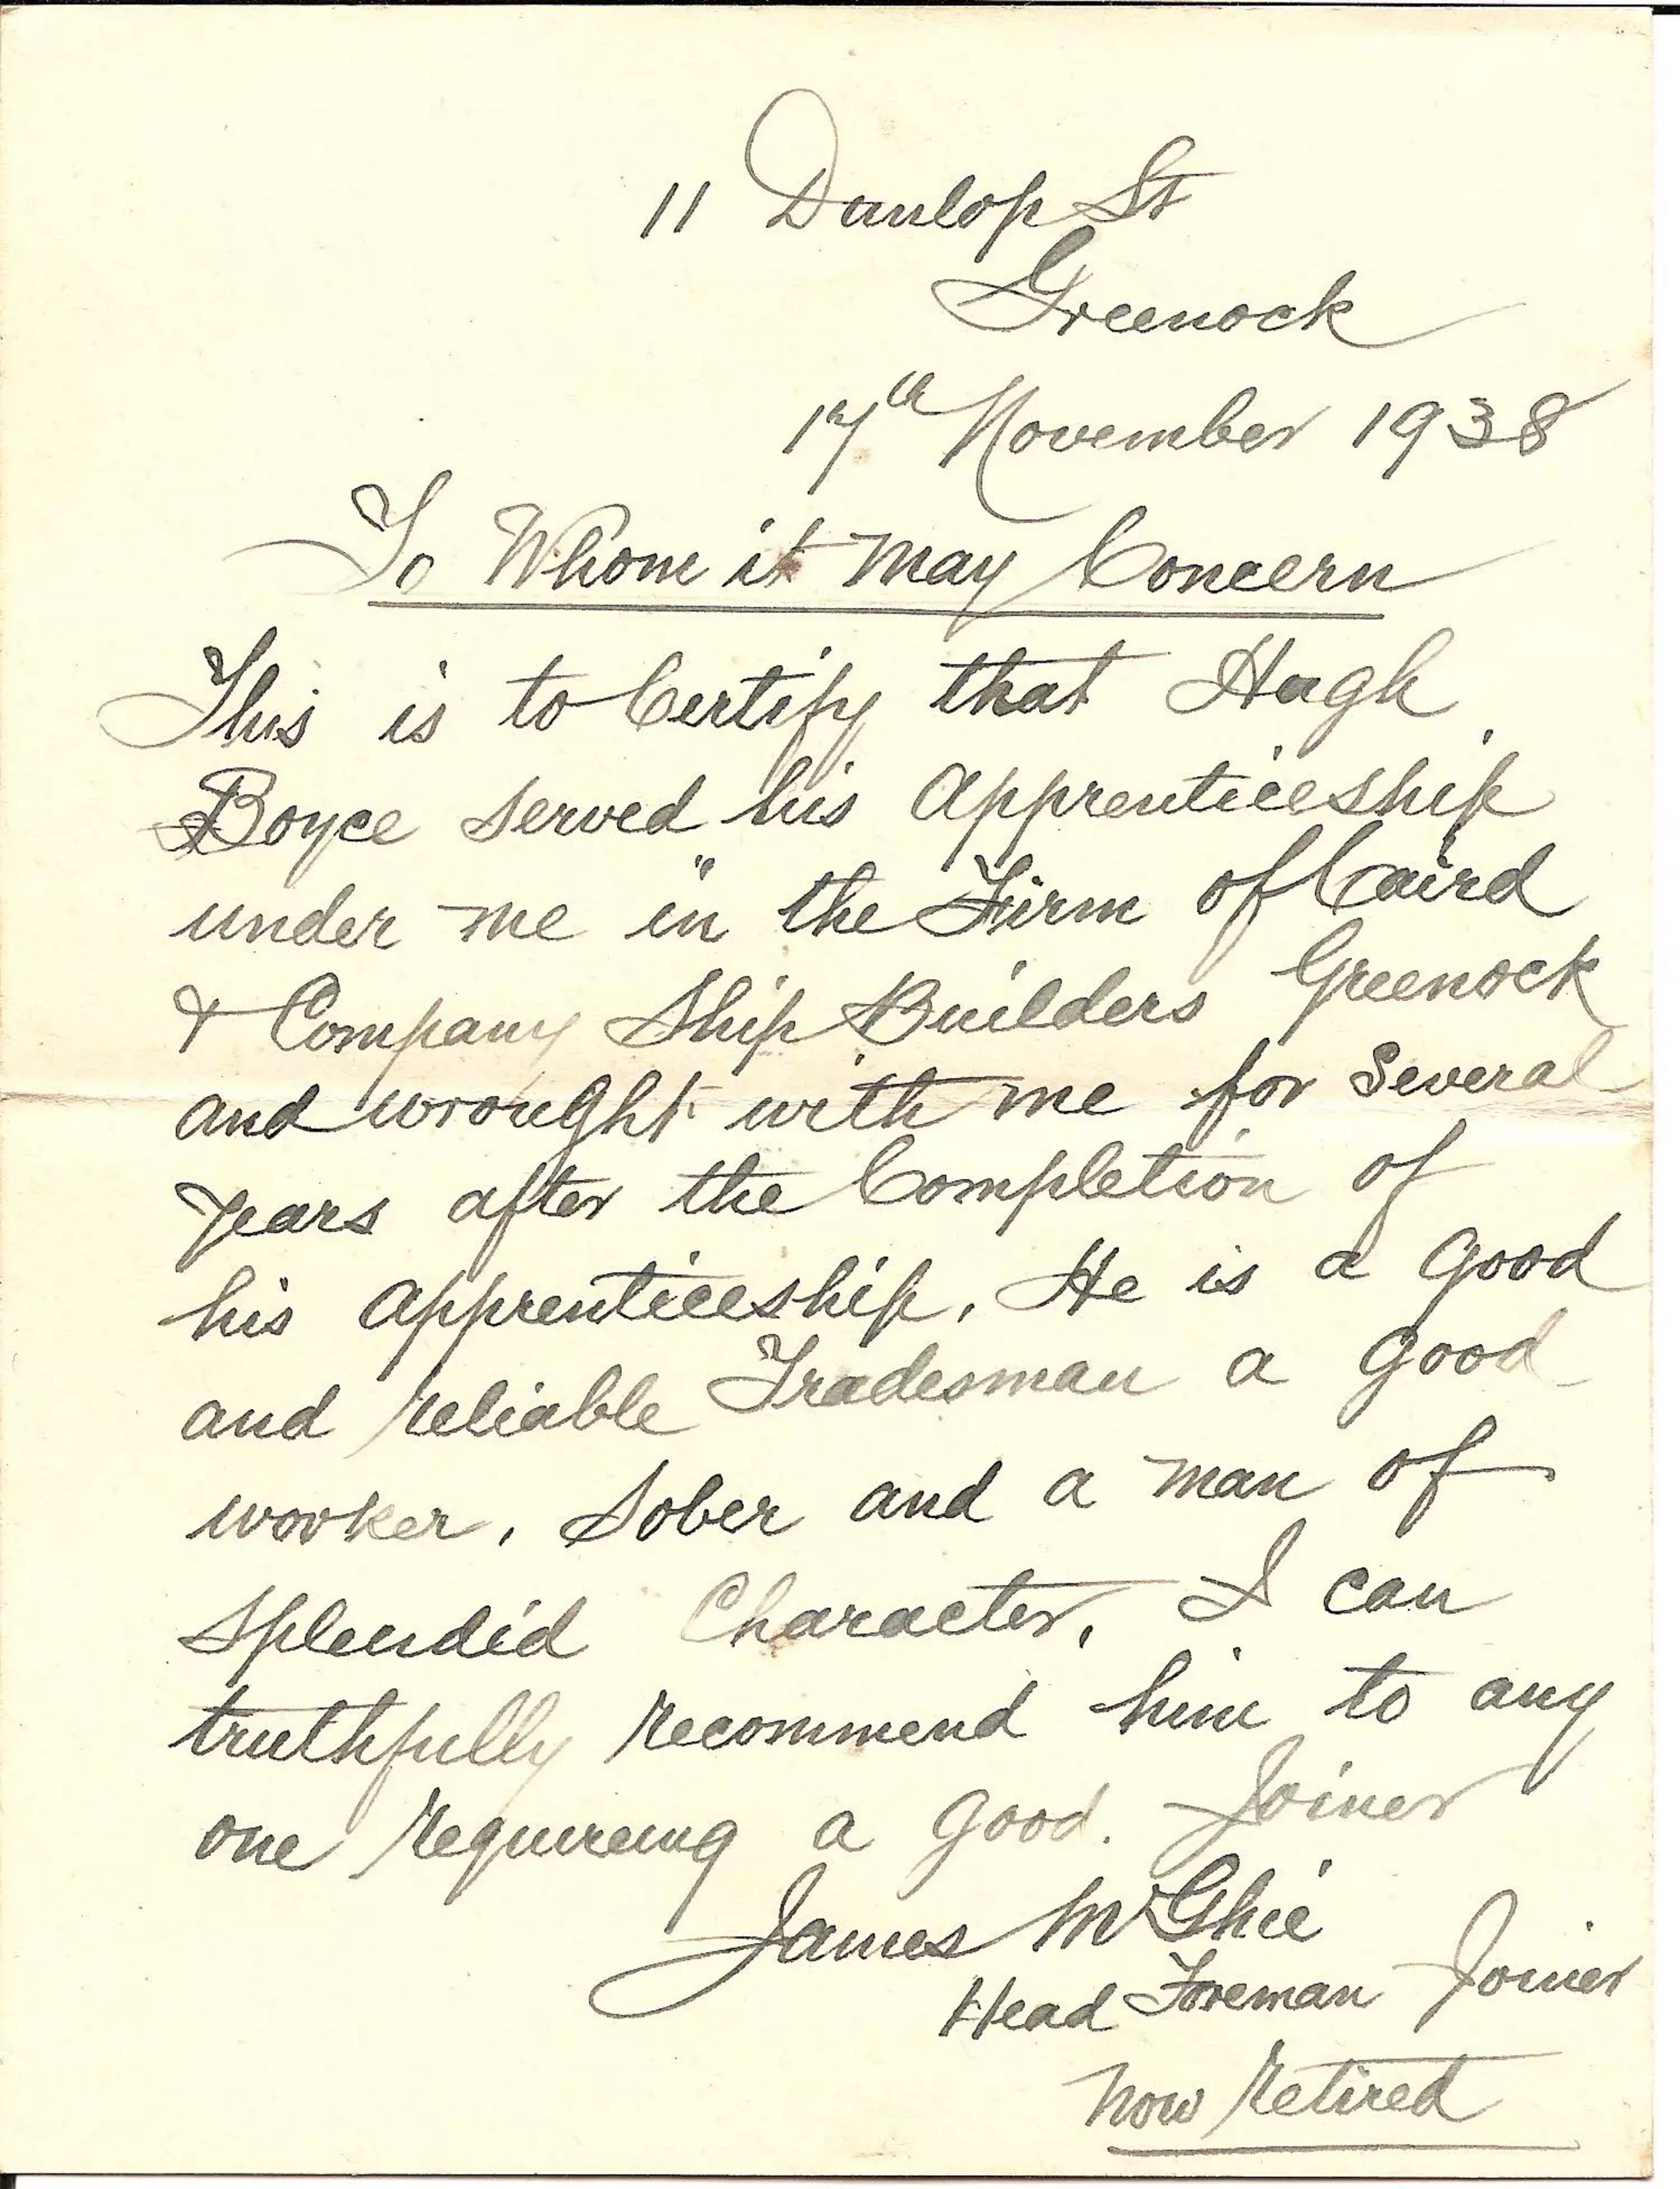 11 Dunlop St
Greenock
17th November 1938
To Whom it May Concern
This is to Certify that Hugh
Boyce served his Apprenticeship
under me in the Firm of Caird
& Company Ship Builders Greenock
and wrought with me for Several
years after the Completion of
his Apprenticeship. He is a Good
and reliable Tradesman a Good
worker, Sober and a man of
Splendid Character, I can
truthfully recommend him to any
one requireing a Good. Joiner
James McGhie
Head Foreman Joiner
now retired